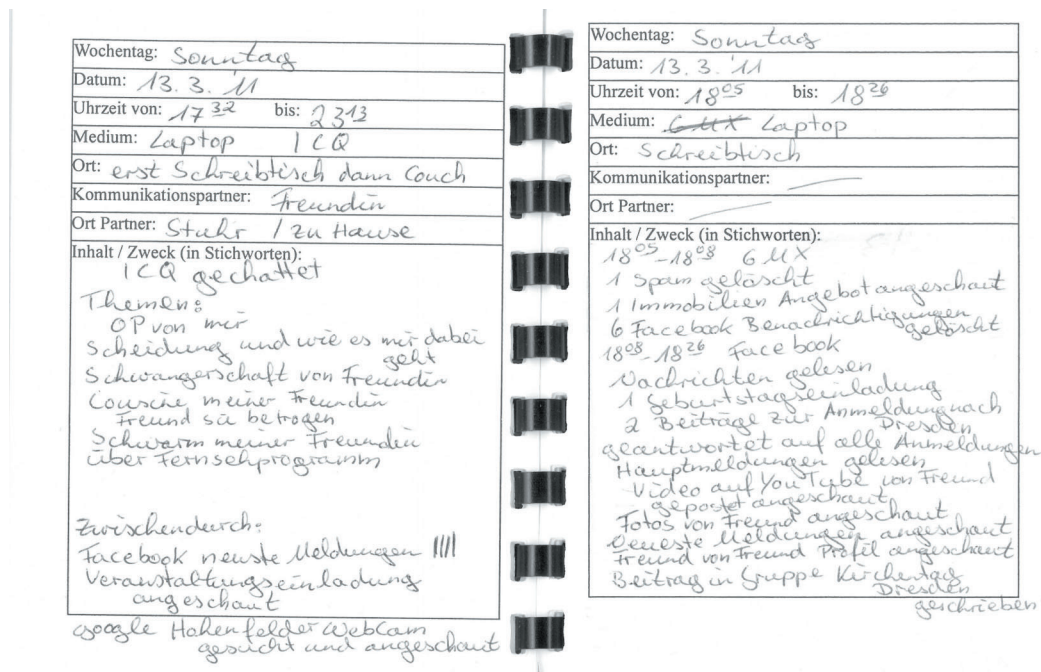 Wochentag: Sonntag
Datum: 13. 3. '11
Uhrzeit von: 17 32 bis: 23 13
Medium: Laptop ICQ
Ort: erst Schreibtisch dann Couch
Kommunikationspartner: Freundin
Ort Partner: Stuhr / zu Hause
Inhalt / Zweck (in Stichworten):
ICQ gechattet
Themen:
OP von mir
Scheidung und wie es mir dabei
geht
Schwangerschaft von Freundin
Cousine meiner Freundin
Freund sie betrogen
Schwarm meiner Freundin
über Fernsehprogramm
Zwischendurch:
Facebook neuste Meldungen IIII
Veranstaltungseinladung
angeschaut
google Hohenfelder Webcam
gesucht und angeschaut
Wochentag: Sonntag
Datum: 13. 3. '11
Uhrzeit von: 18 05 bis: 18 26
Medium: GMX Laptop
Ort: Schreibtisch
Kommunikationspartner:
Ort Partner:
Inhalt / Zweck (in Stichworten):
18 05 - 18 08 GMX
1 Spam gelöscht
1 Immobilien Angebot angeschaut
6 Facebook Benachrichtigungen
gelöscht
18 08 - 18 26 Facebook
Nachrichten gelesen
1 Geburtstagseinladung
2 Beiträge zur Anmeldung nach
Dresden
geantwortet auf alle Anmeldungen
Hauptmeldungen gelesen
Video auf YouTube von Freund
gepostet angeschaut
Fotos von Freund angeschaut
Neueste Meldungen angeschaut
Freund von Freund Profil angeschaut
Beitrag in Gruppe Kirchentag
Dresden
geschrieben